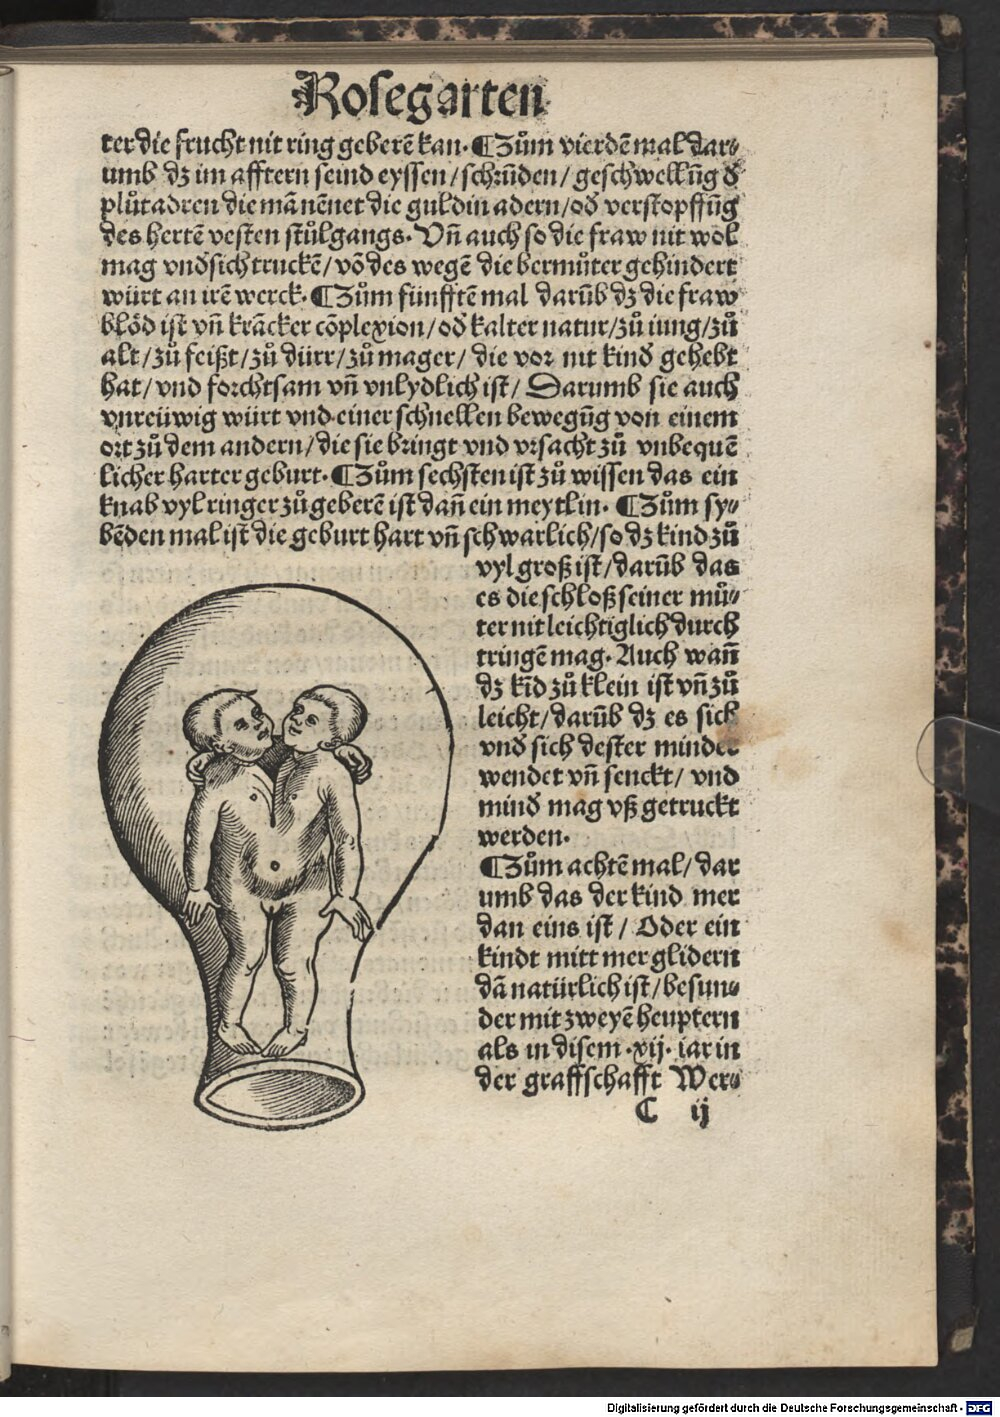 Rosegarten
ter die frucht nit ring geberē kan. ¶ Zům vierdē mal dar⸗
umb dz im afftern seind eyssen / schrūden / geschwellūg d̕
plůtadren die mā nēnet die guldin adern / od̕ verstopffūg
des hertē vesten stůlgangs. Vn̄ auch so die fraw nit wol
mag vnd̕sich truckē / vō des wegē die bermůter gehindert
würt an irē werck. ¶ Zům fünfftē mal darūb dz die fraw
blöd ist vn̄ krācker cōplexion / od̕ kalter natur / zů iung / zů
alt / zů feißt / zů dürr / zů mager / die vor nit kind gehebt
hat / vnd forchtsam vn̄ vnlydlich ist / Darumb sie auch
vnreüwig würt vnd einer schnellen bewegūg von einem
ort zů dem andern / die sie bringt vnd vrsacht zů vnbequē
licher harter geburt. ¶ Zům sechsten ist zů wissen das ein
knab vyl ringer zů geberē ist dan̄ ein meytlin. ¶ Zům sy⸗
bēden mal ist die geburt hart vn̄ schwarlich / so dz kind zů
vyl groß ist / darūb das
es die schloß seiner mů⸗
ter nit leichtiglich durch
tringē mag. Auch wan̄
dz kīd zů klein ist vn̄ zů
leicht / darūb dz es sich
vnd sich dester minder
wendet vn̄ senckt / vnd
mind̕ mag vß getruckt
werden.
¶ Zům achtē mal / dar
umb das der kind mer
dan eins ist / Oder ein
kindt mitt mer glidern
dā natürlich ist / besun⸗
der mit zweyē heuptern
als in disem .xij. iar in
der graffschafft Wer⸗
C ij
Digitalisierung gefördert durch die Deutsche Forschungsgemeinschaft - DFG